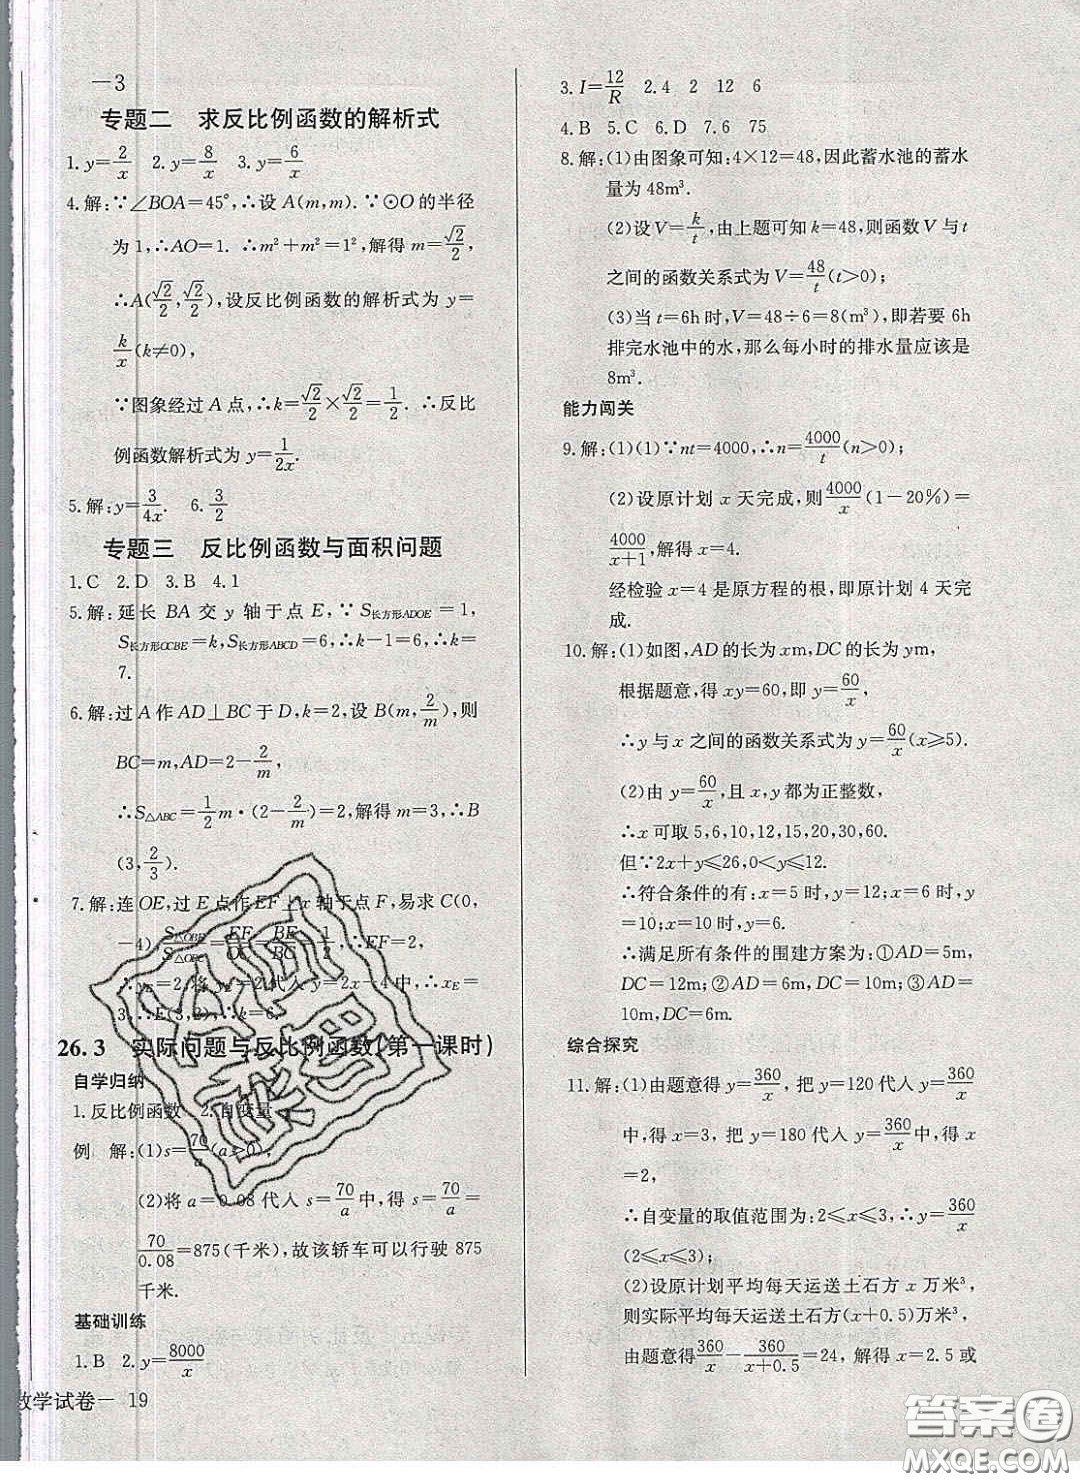 －3
专题二　求反比例函数的解析式
1. y=2/x　2. y=8/x　3. y=6/x
4. 解:∵∠BOA=45°,∴设 A(m,m). ∵⊙O 的半径
为 1,∴AO=1. ∴m²+m²=1²,解得 m=√2/2,
∴A(√2/2,√2/2),设反比例函数的解析式为 y=
k/x(k≠0),
∵图象经过 A 点,∴k=√2/2×√2/2=1/2. ∴反比
例函数解析式为 y=1/2x.
5. 解:y=3/4x.　6. 3/2
专题三　反比例函数与面积问题
1. C　2. D　3. B　4. 1
5. 解:延长 BA 交 y 轴于点 E,∵S长方形ADOE=1,
S长方形OCBE=k,S长方形ABCD=6,∴k－1=6,∴k=
7.
6. 解:过 A 作 AD⊥BC 于 D,k=2,设 B(m,2/m),则
BC=m,AD=2－2/m,
∴S△ABC=1/2m·(2－2/m)=2,解得 m=3,∴B
(3,2/3).
7. 解:连 OE,过 E 点作 EF⊥x 轴于点 F,易求 C(0,
－4),S△OBE/S△OEC=EF/OC=BE/BC=1/2,∴EF=2,
∴yE=2,将 yE=2 代入 y=2x－4 中,∴xE=
3,∴E(3,2),∴k=6.
26.3　实际问题与反比例函数(第一课时)
自学归纳
1. 反比例函数　2. 自变量
例　解:(1)s=70/a(a>0),
(2)将 a=0.08 代入 s=70/a中,得 s=70/a=
70/0.08=875(千米),故该轿车可以行驶 875
千米.
基础训练
1. B　2. y=8000/x
数学试卷－ 19
3. I=12/R　2. 4　2　12　6
4. B　5. C　6. D　7. 6　75
8. 解:(1)由图象可知:4×12=48,因此蓄水池的蓄水
量为 48m³.
(2)设V=k/t,由上题可知 k=48,则函数 V 与 t
之间的函数关系式为 V=48/t(t>0);
(3)当 t=6h 时,V=48÷6=8(m³),即若要 6h
排完水池中的水,那么每小时的排水量应该是
8m³.
能力闯关
9. 解:(1)(1)∵nt=4000,∴n=4000/t(n>0);
(2)设原计划 x 天完成,则4000/x(1－20%)=
4000/x+1,解得 x=4.
经检验 x=4 是原方程的根,即原计划 4 天完
成.
10. 解:(1)如图,AD 的长为 xm,DC 的长为 ym,
根据题意,得 xy=60,即 y=60/x,
∴y 与 x 之间的函数关系式为 y=60/x(x⩾5).
(2)由 y=60/x,且 x,y 都为正整数,
∴x 可取 5,6,10,12,15,20,30,60.
但∵2x+y⩽26,0<y⩽12.
∴符合条件的有:x=5 时,y=12;x=6 时,y=
10;x=10 时,y=6.
∴满足所有条件的围建方案为:①AD=5m,
DC=12m;②AD=6m,DC=10m;③AD=
10m,DC=6m.
综合探究
11. 解:(1)由题意得 y=360/x,把 y=120 代入 y=360/x
中,得 x=3,把 y=180 代入 y=360/x中,得 x
=2,
∴自变量的取值范围为:2⩽x⩽3,∴y=360/x
(2⩽x⩽3);
(2)设原计划平均每天运送土石方 x 万米³,
则实际平均每天运送土石方(x+0.5)万米³,
由题意得360/x－360/x+0.5=24,解得 x=2.5 或
答案圈
MXQE.COM